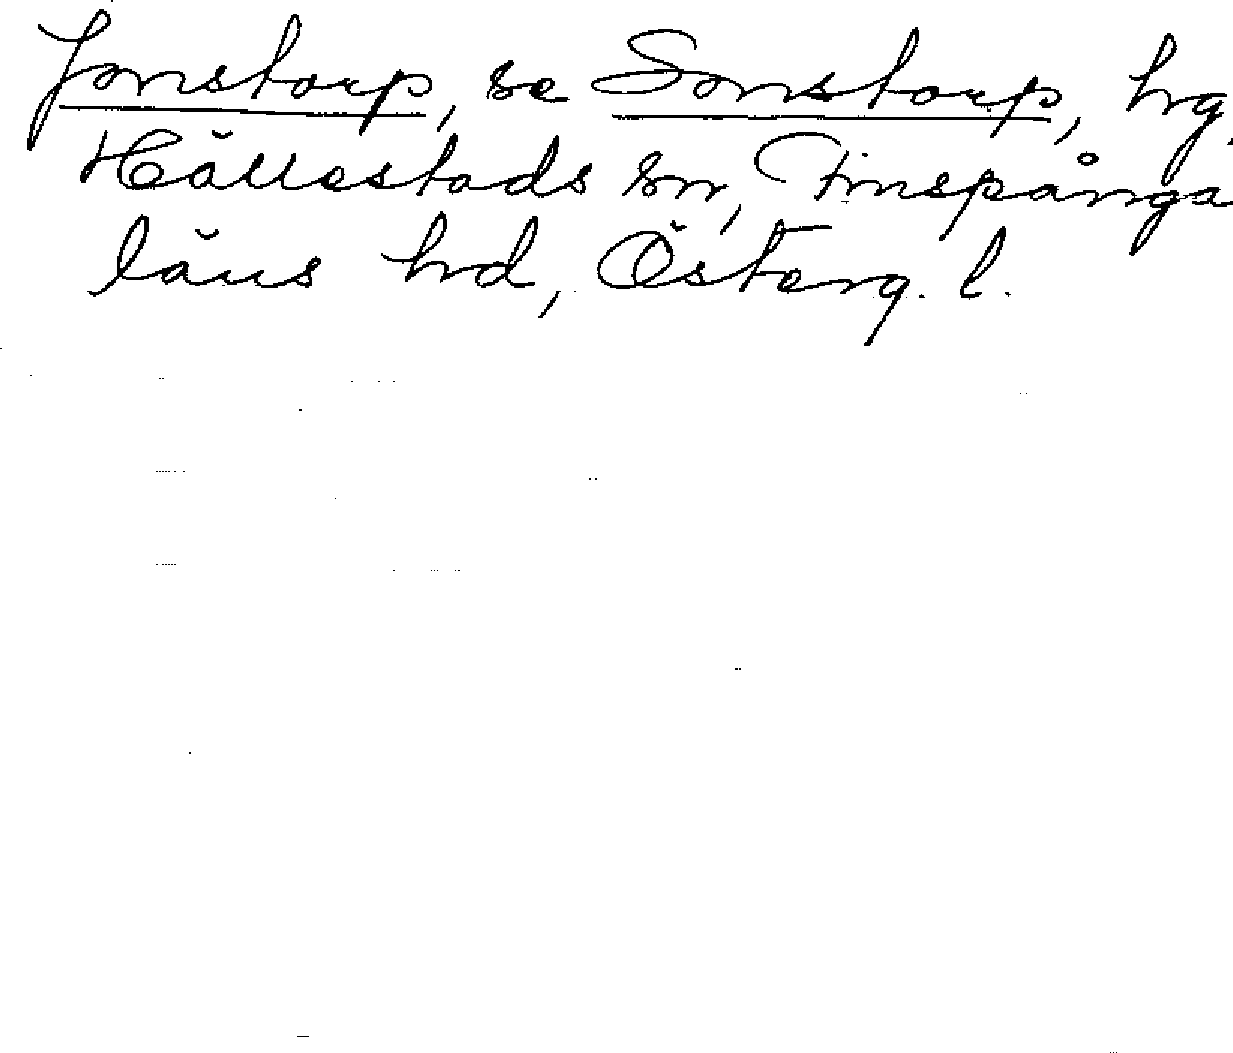 Jonstorp, se Sonstorp, hg,
Hällestads sn, Finspånga
läns hd, Österg. l.